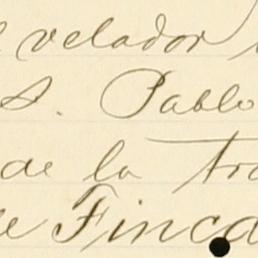 velador
S. Pablo
de la tra
Finca